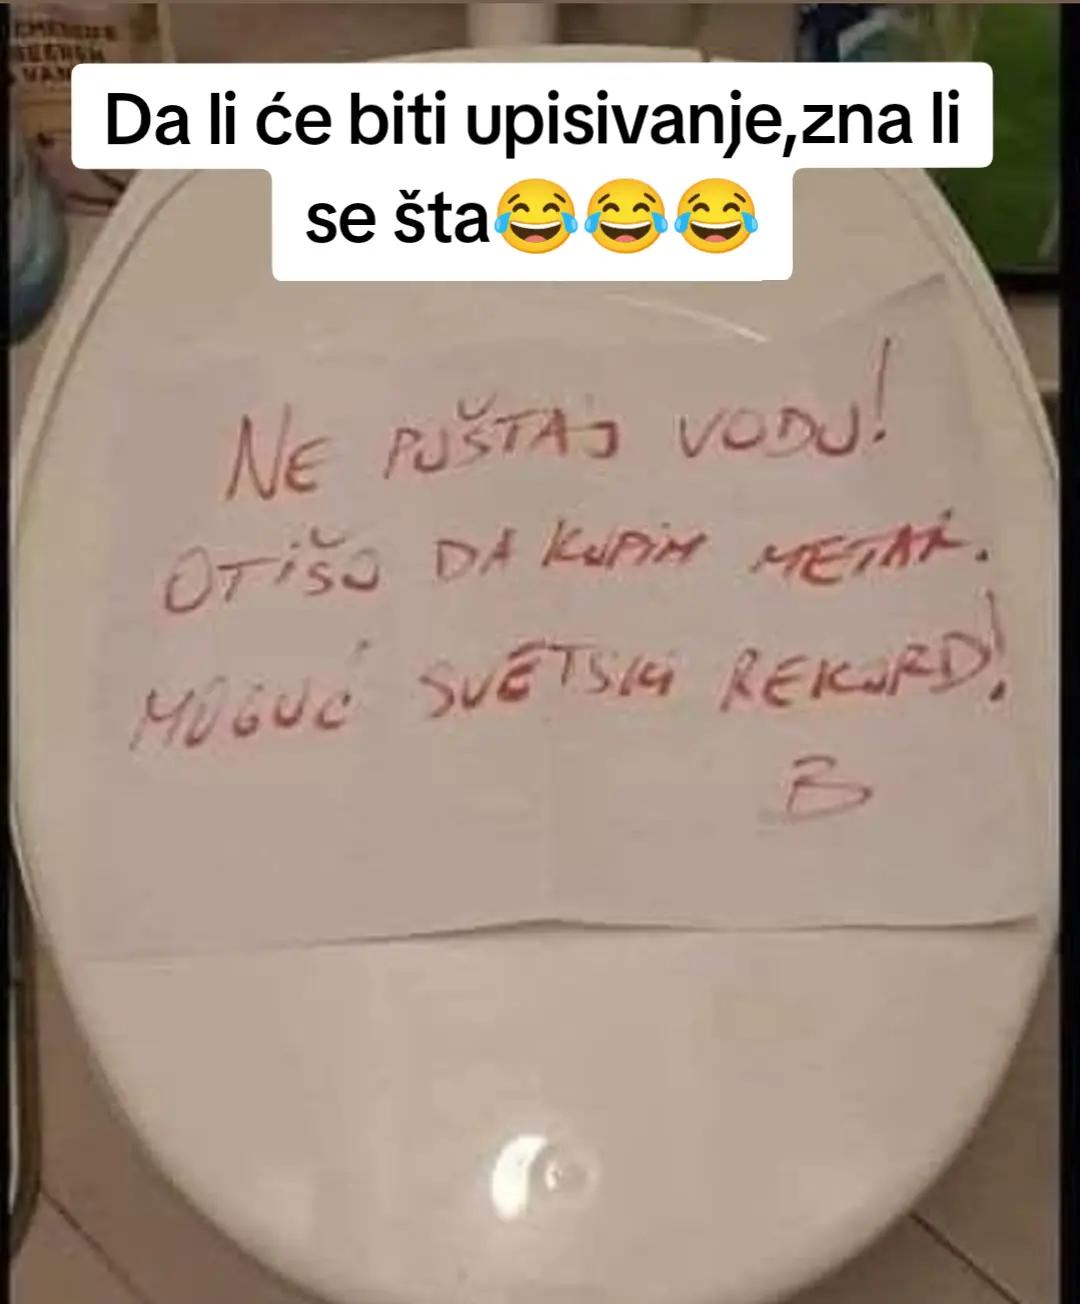 Da li će biti upisivanje,zna li
se šta😂😂😂
NE PUŠTAJ VODU!
OTIŠO DA KUPIM METAR.
MOGUĆ SVETSKI REKORD!
B